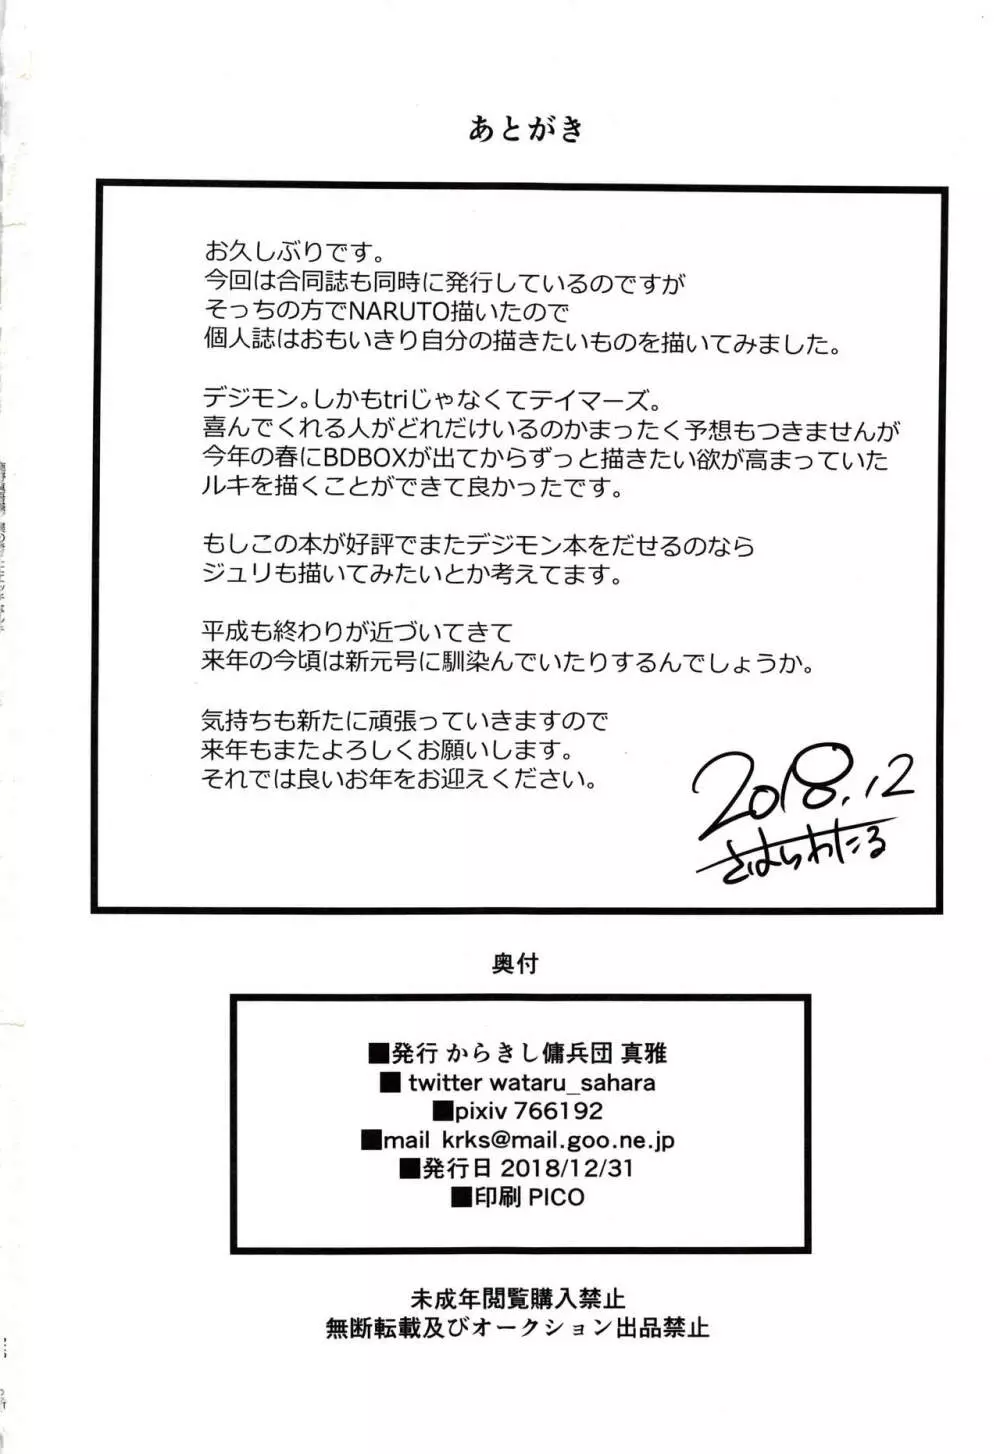 あとがき
お久しぶりです。
今回は合同誌も同時に発行しているのですが
そっちの方でNARUTO描いたので
個人誌はおもいきり自分の描きたいものを描いてみました。
デジモン。しかもtriじゃなくてテイマーズ。
喜んでくれる人がどれだけいるのかまったく予想もつきませんが
今年の春にBDBOXが出てからずっと描きたい欲が高まっていた
ルキを描くことができて良かったです。
もしこの本が好評でまたデジモン本をだせるのなら
ジュリも描いてみたいとか考えてます。
平成も終わりが近づいてきて
来年の今頃は新元号に馴染んでいたりするんでしょうか。
気持ちも新たに頑張っていきますので
来年もまたよろしくお願いします。
それでは良いお年をお迎えください。
2018.12
さはらわたる
奥付
■発行 からきし傭兵団 真雅
■ twitter wataru_sahara
■pixiv 766192
■mail krks@mail.goo.ne.jp
■発行日 2018/12/31
■印刷 PICO
未成年閲覧購入禁止
無断転載及びオークション出品禁止